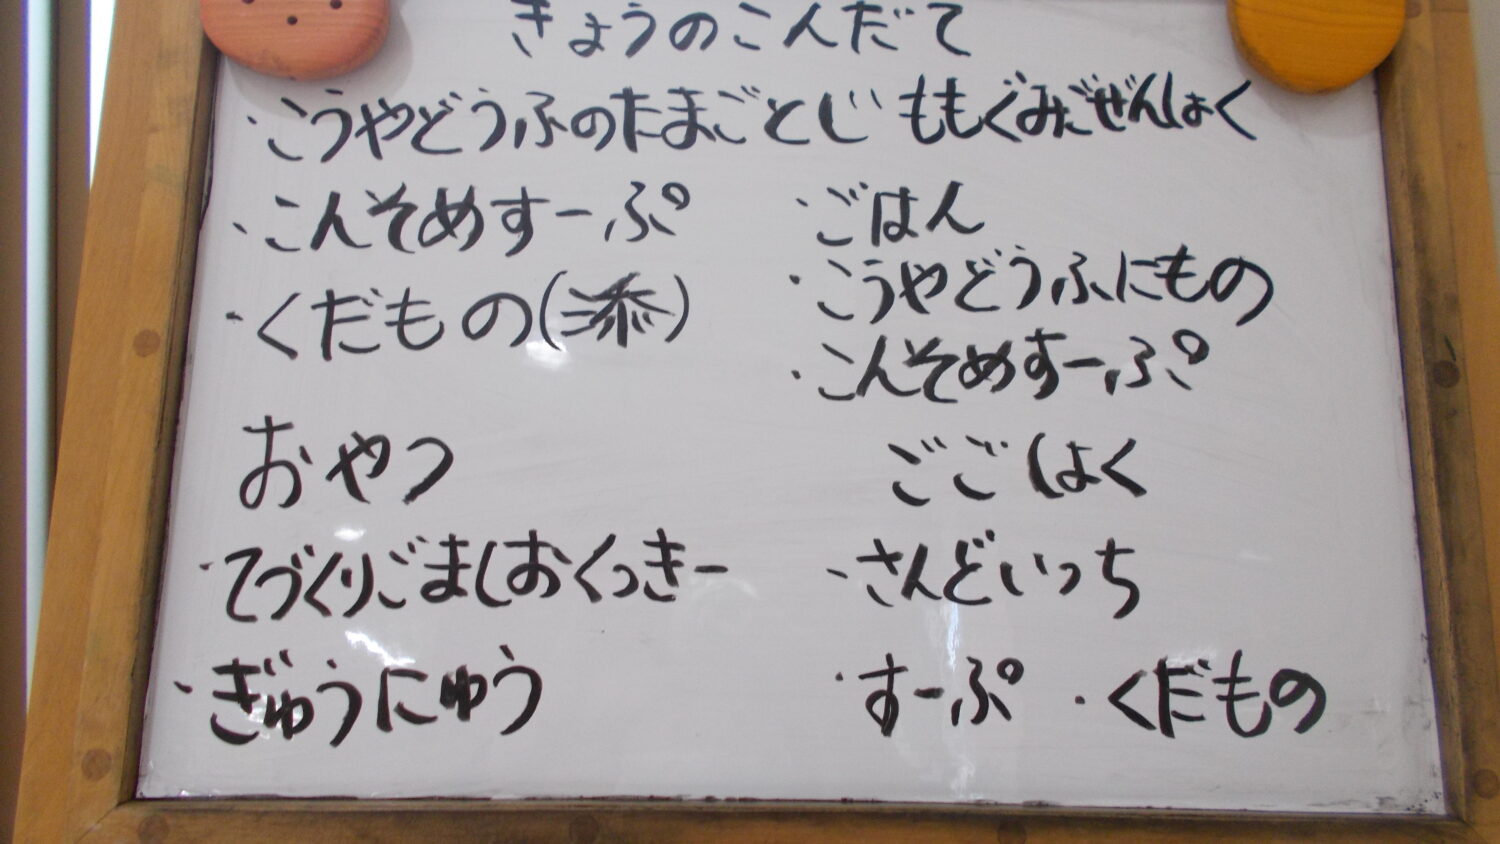 きょうのこんだて
・こうやどうふのたまごとじ
・こんそめすーぷ
・くだもの(添)
おやつ
・てづくりごましおくっきー
・ぎゅうにゅう
ももぐみごぜんしょく
・ごはん
・こうやどうふにもの
・こんそめすーぷ
ごごしょく
・さんどいっち
・すーぷ ・くだもの